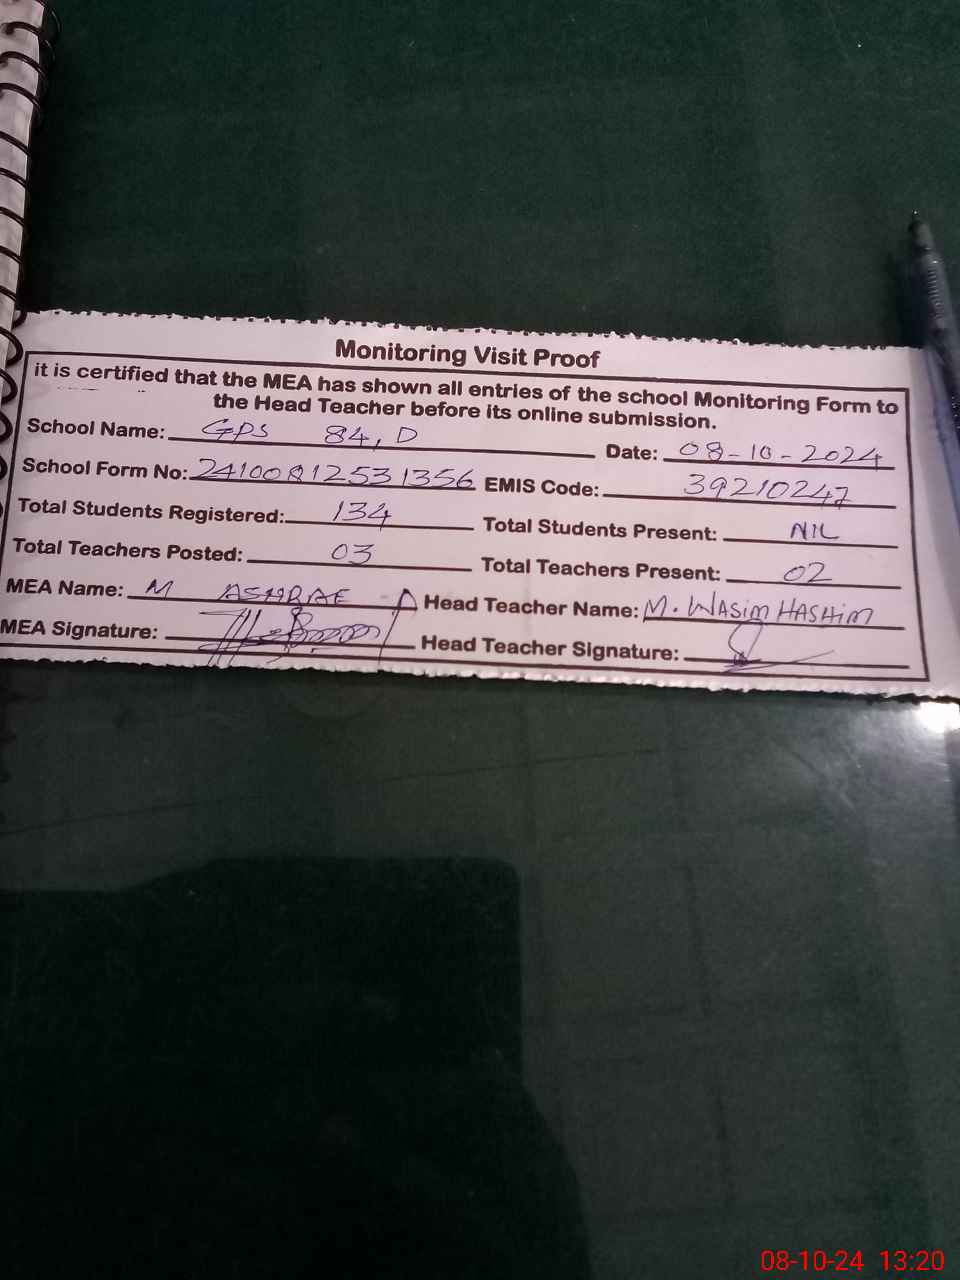 Monitoring Visit Proof
it is certified that the MEA has shown all entries of the school Monitoring Form to
the Head Teacher before its online submission.
School Name: GPS 84, D Date: 08-10-2024
School Form No: 24100812531356 EMIS Code: 39210247
Total Students Registered: 134 Total Students Present: NIL
Total Teachers Posted: 03 Total Teachers Present: 02
MEA Name: M ASHRAF Head Teacher Name: M. WASIM HASHIM
MEA Signature: Head Teacher Signature:
08-10-24 13:20